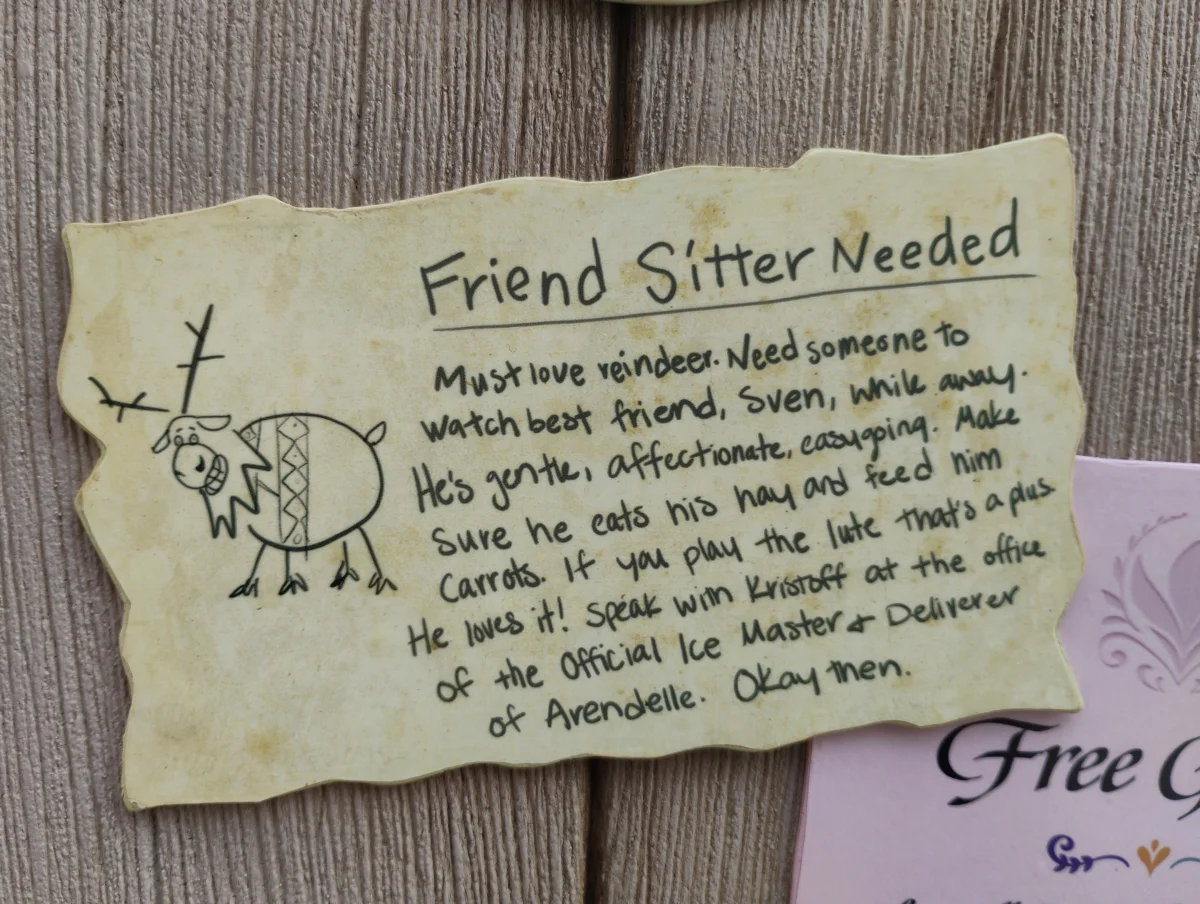 Friend Sitter Needed
Must love reindeer. Need someone to
watch best friend, Sven, while away.
He's gentle, affectionate, easygoing. Make
sure he eats his hay and feed him
Carrots. If you play the lute that's a plus.
He loves it! Speak with Kristoff at the office
of the Official Ice Master & Deliverer
of Arendelle. Okay then.
Free